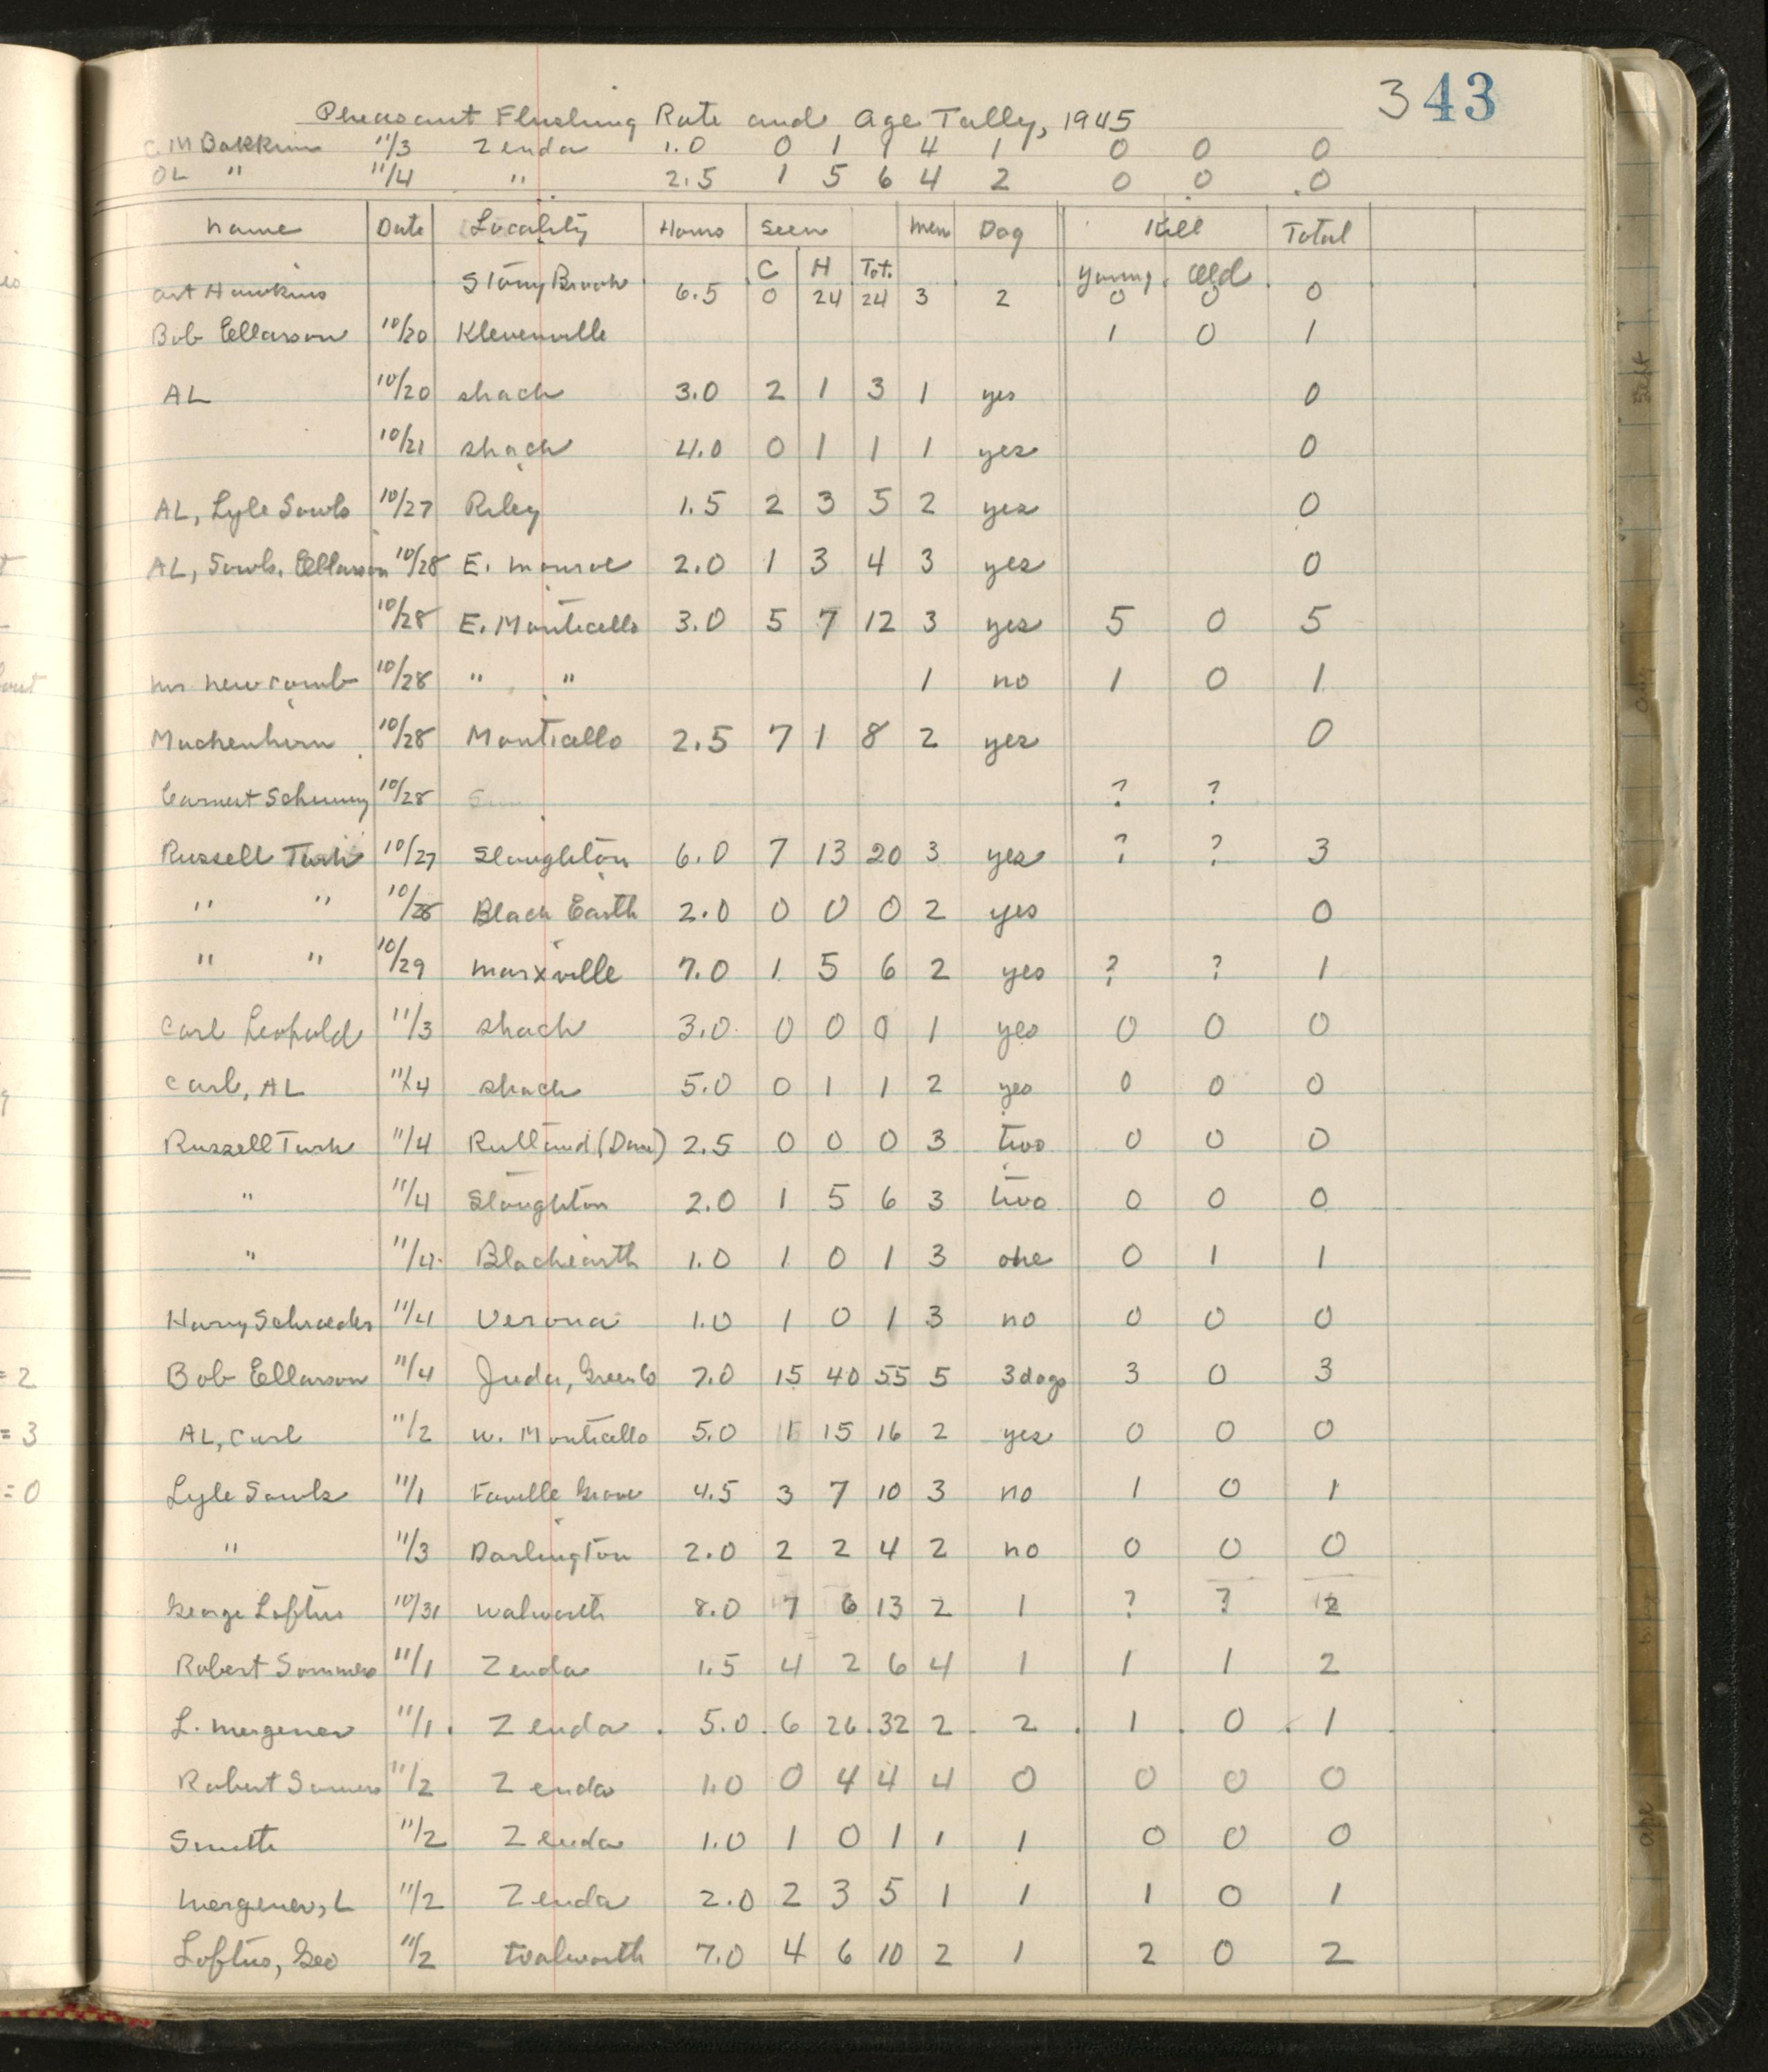 343
Pheasant Flushing Rate and Age Tally, 1945
C M Bakkum 11/3 Zenda 1.0 0 1 1 4 1 0 0 0
OL " 11/4 " 2.5 1 5 6 4 2 0 0 0
Name Date Locality Hours Seen Men Dog Kill Total
C H Tot. Young Old
Art Hawkins Stony Brook 6.5 0 24 24 3 2 0 0 0
Bob Ellarson 10/20 Klevenville 1 0 1
AL 10/20 shack 3.0 2 1 3 1 yes 0
10/21 shack 4.0 0 1 1 1 yes 0
AL, Lyle Sowls 10/27 Riley 1.5 2 3 5 2 yes 0
AL, Sowls, Ellarson 10/28 E. Monroe 2.0 1 3 4 3 yes 0
10/28 E. Monticello 3.0 5 7 12 3 yes 5 0 5
Mr Newcomb 10/28 " " 1 no 1 0 1
10/28 Monticello 2.5 7 1 8 2 yes 0
10/28 ? ?
Russell Turk 10/27 Stoughton 6.0 7 13 20 3 yes ? ? 3
" " 10/28 Black Earth 2.0 0 0 0 2 yes 0
" " 10/29 Marxville 7.0 1 5 6 2 yes ? ? 1
Carl Leopold 11/3 shack 3.0 0 0 0 1 yes 0 0 0
Carl, AL 11/4 shack 5.0 0 1 1 2 yes 0 0 0
Russell Turk 11/4 Rutland (Dane) 2.5 0 0 0 3 two 0 0 0
" 11/4 Stoughton 2.0 1 5 6 3 two 0 0 0
" 11/4 Blackearth 1.0 1 0 1 3 one 0 1 1
Harry Schroeder 11/4 Verona 1.0 1 0 1 3 no 0 0 0
Bob Ellarson 11/4 Juda, Green Co 7.0 15 40 55 5 3 dogs 3 0 3
AL, Carl 11/2 W. Monticello 5.0 1 15 16 2 yes 0 0 0
Lyle Sowls 11/1 Faville Grove 4.5 3 7 10 3 no 1 0 1
" 11/3 Darlington 2.0 2 2 4 2 no 0 0 0
George Loftus 10/31 Walworth 8.0 7 6 13 2 1 ? ? 2
Robert Sommers 11/1 Zenda 1.5 4 2 6 4 1 1 1 2
L. Mergener 11/1 Zenda 5.0 6 26 32 2 2 1 0 1
Robert Somers 11/2 Zenda 1.0 0 4 4 4 0 0 0 0
Smith 11/2 Zenda 1.0 1 0 1 1 1 0 0 0
Mergener, L 11/2 Zenda 2.0 2 3 5 1 1 1 0 1
Loftus, Geo 11/2 Walworth 7.0 4 6 10 2 1 2 0 2
= 2
= 3
= 0